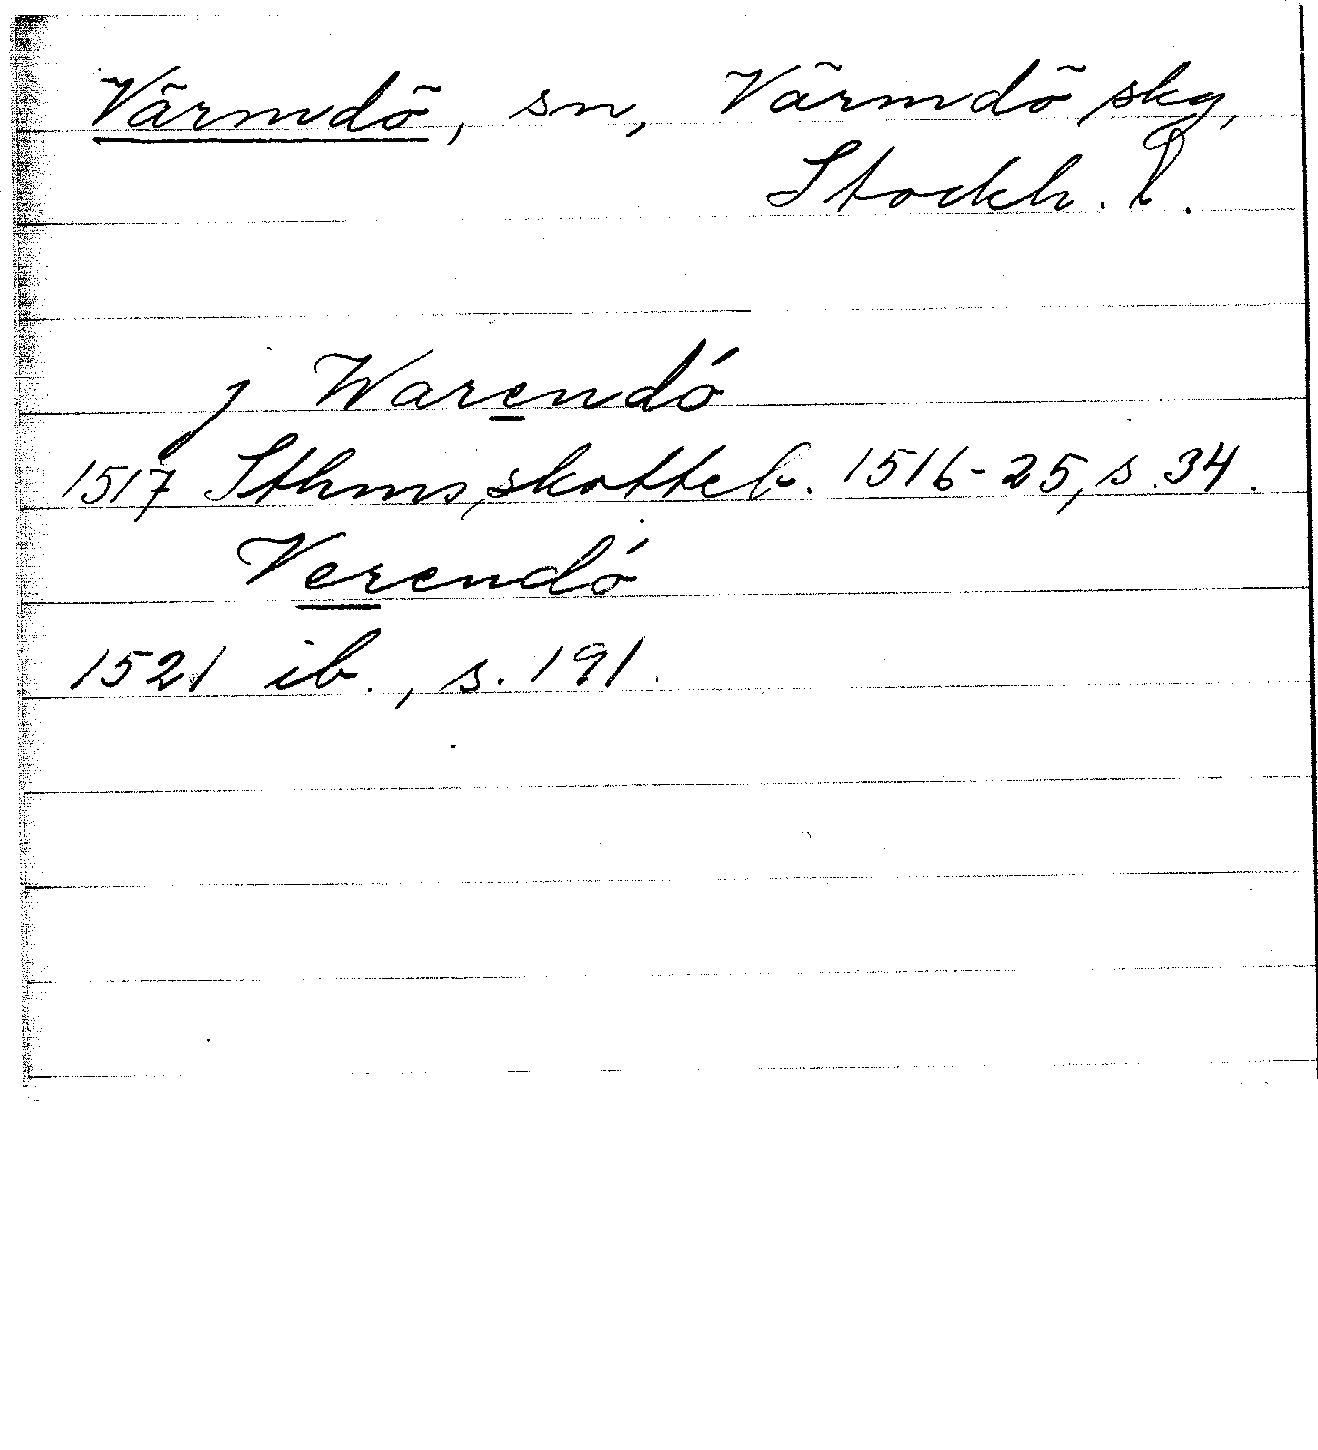 Värmdö, sn, Värmdö skg,
Stockh. l.
j Warendó
1517 Sthms skotteb. 1516-25, s. 34.
Verendó
1521 ib., s. 191.